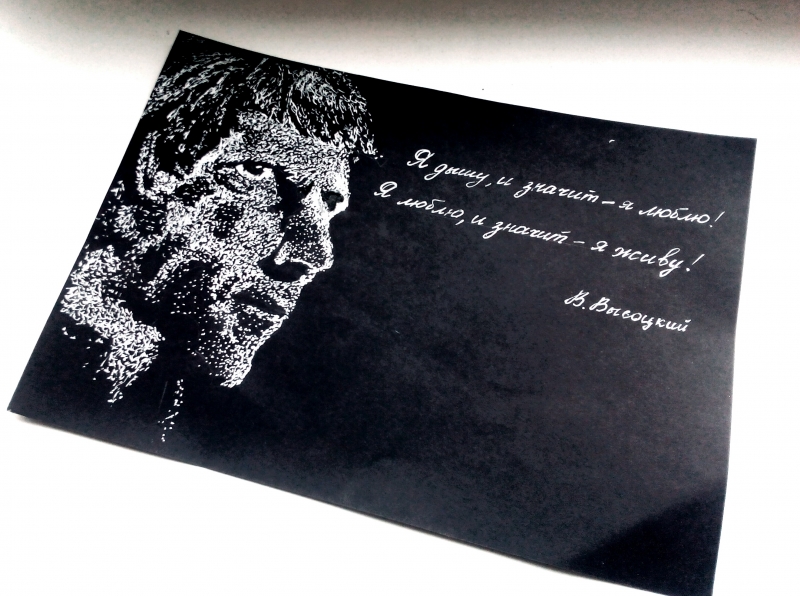 Я дышу, и значит – я люблю!
Я люблю, и значит – я живу!
В. Высоцкий